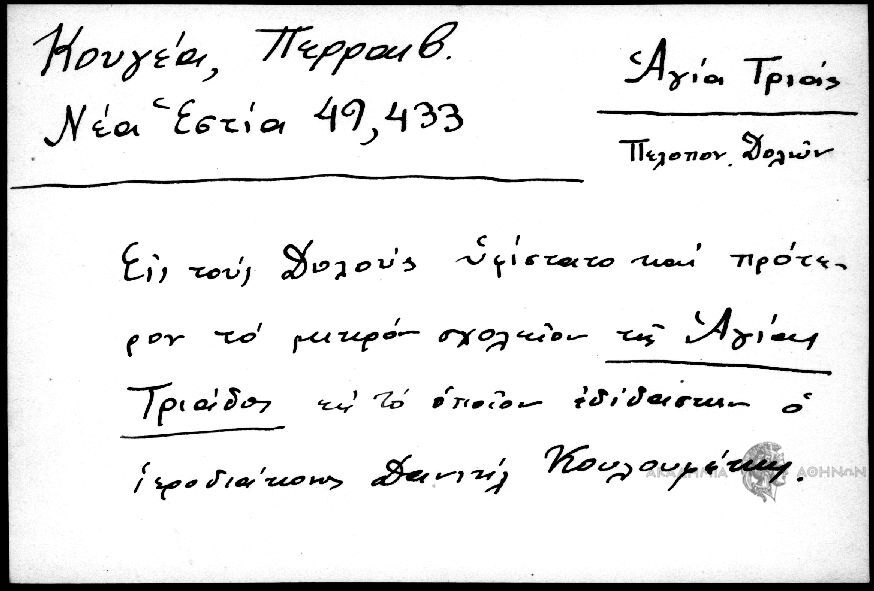 Κουγέα, Περραιβ.
Νέα Ἑστία 49, 433
Ἁγία Τριάς
Πελοπον. Δολῶν
Εἰς τούς Δολούς ὑφίστατο καί πρότε-
ρον τό μικρόν σχολεῖον τῆς Ἁγίας
Τριάδος εἰς τό ὁποῖον ἐδίδασκεν ὁ
ἱεροδιάκονος Δανιήλ
ΑΚΑΔΗΜΙΑ ΑΘΗΝΩΝ